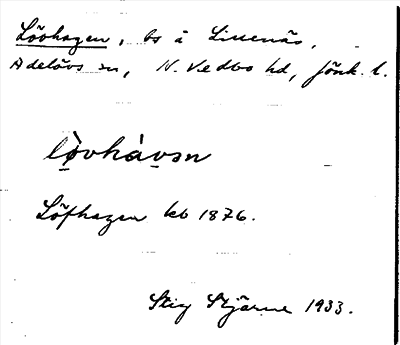 Lövhagen, bs å Lillenäs,
Adelövs sn, N. Vedbo hd, Jönk. l.
lò̤vhàvən
Löfhagen kb 1876.
Stig Stjärne 1933.